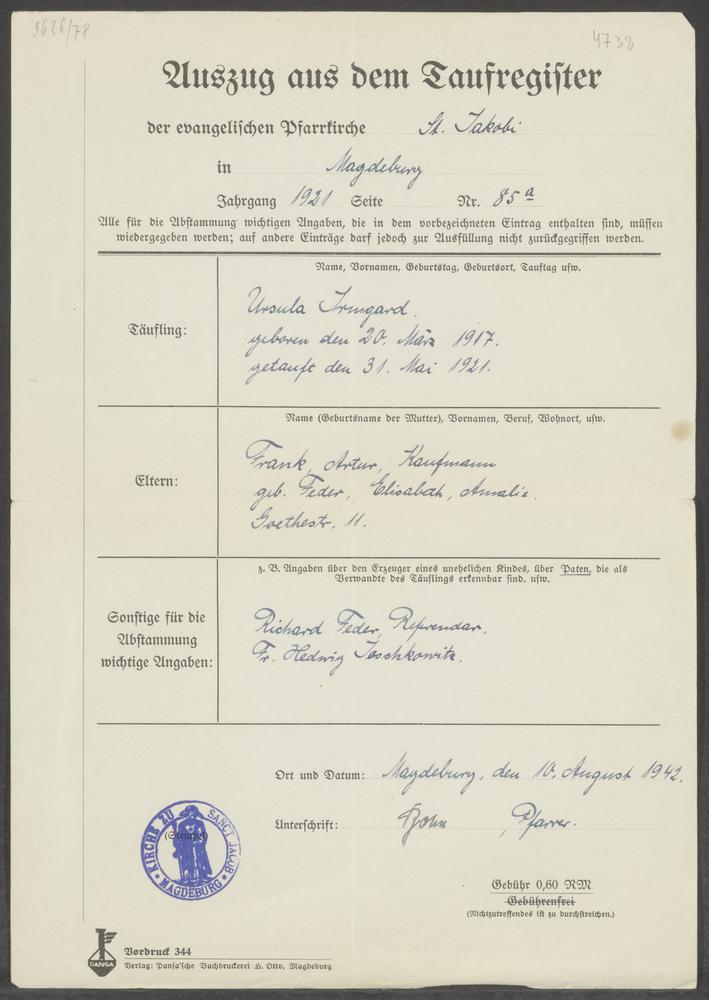 9626/78
4738
Auszug aus dem Taufregister
der evangelischen Pfarrkirche St. Jakobi
in Magdeburg
Jahrgang 1921 Seite Nr. 85 a
Alle für die Abstammung wichtigen Angaben, die in dem vorbezeichneten Eintrag enthalten sind, müssen
wiedergegeben werden; auf andere Einträge darf jedoch zur Ausfüllung nicht zurückgegriffen werden.
Name, Vornamen, Geburtstag, Geburtsort, Tauftag usw.
Täufling:
Ursula Irmgard.
geboren den 20. März 1917.
getauft den 31. Mai 1921.
Name (Geburtsname der Mutter), Vornamen, Beruf, Wohnort, usw.
Eltern:
Frank, Artur, Kaufmann
geb. Feder, Elisabeth, Amalie.
Goethestr. 11.
z. B. Angaben über den Erzeuger eines unehelichen Kindes, über Paten, die als
Verwandte des Täuflings erkennbar sind, usw.
Sonstige für die
Abstammung
wichtige Angaben:
Richard Feder, Referendar.
Fr. Hedwig Joschkowitz.
Ort und Datum: Magdeburg, den 10. August 1942.
Unterschrift: , Pfarrer.
(Stempel)
KIRCHE ZU SANCT JACOB
MAGDEBURG
Gebühr 0,60 RM
Gebührenfrei
(Nichtzutreffendes ist zu durchstreichen.)
DANSA
Vordruck 344
Verlag: Pansa'sche Buchdruckerei H. Otto, Magdeburg